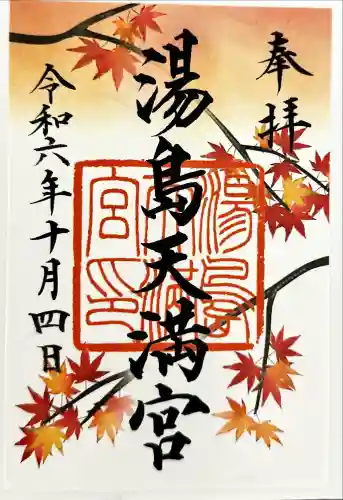 奉拝
湯島天満宮
令和六年十月四日
湯島
天満
宮印